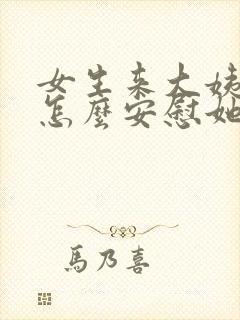 女生来大姨
怎麼安慰她
馬乃喜